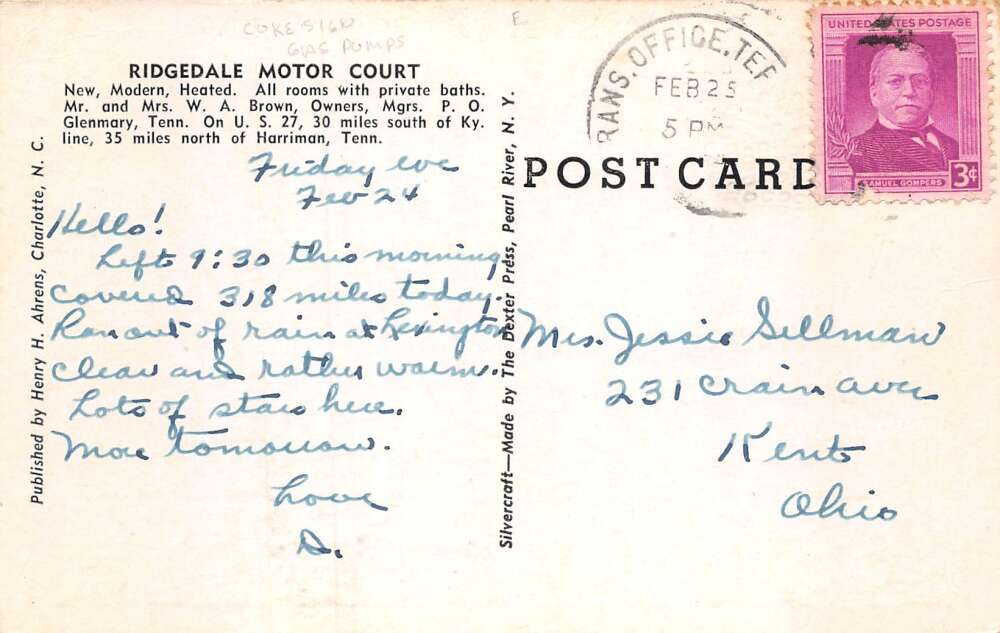 COKE SIGN
GAS PUMPS
E
RIDGEDALE MOTOR COURT
New, Modern, Heated. All rooms with private baths.
Mr. and Mrs. W. A. Brown, Owners, Mgrs. P. O.
Glenmary, Tenn. On U. S. 27, 30 miles south of Ky.
line, 35 miles north of Harriman, Tenn.
Friday eve
Feb 24
Hello!
Left 9:30 this morning
Covered 318 miles today.
Ran out of rain at Lexington
Clear and rather warm.
Lots of stars here.
More tomorrow.
Love
D.
Published by Henry H. Ahrens, Charlotte, N. C.
Silvercraft—Made by The Dexter Press, Pearl River, N. Y.
POST CARD
RANS. OFFICE, TER
FEB 25
5 PM
UNITED STATES POSTAGE
SAMUEL GOMPERS
3¢
Mrs. Jessie Sellman
231 Crain Ave
Kent
Ohio